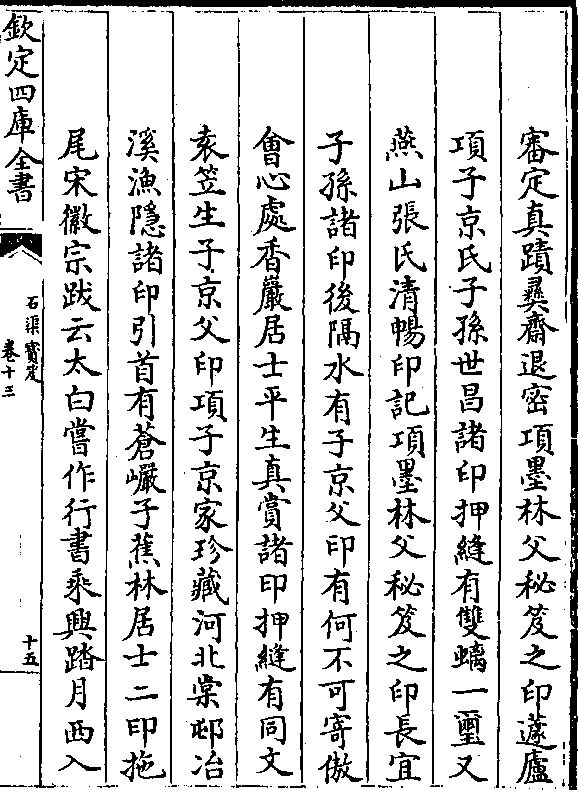 審定真蹟彛齋退密項墨林父秘笈之印蘧廬
項子京氏子孫世昌諸印押縫有雙螭一璽又
燕山張氏清暢印記項墨林父秘笈之印長宜
子孫諸印後隔水有子京父印有何不可寄傲
會心處香巖居士平生真賞諸印押縫有同文
袁笠生子京父印項子京家珍藏河北棠邨冶
溪漁隱諸印引首有蒼巘子蕉林居士二印拖
尾宋徽宗跋云太白嘗作行書乘興踏月西入
欽定四庫全書
石渠寳笈
卷十三
十五